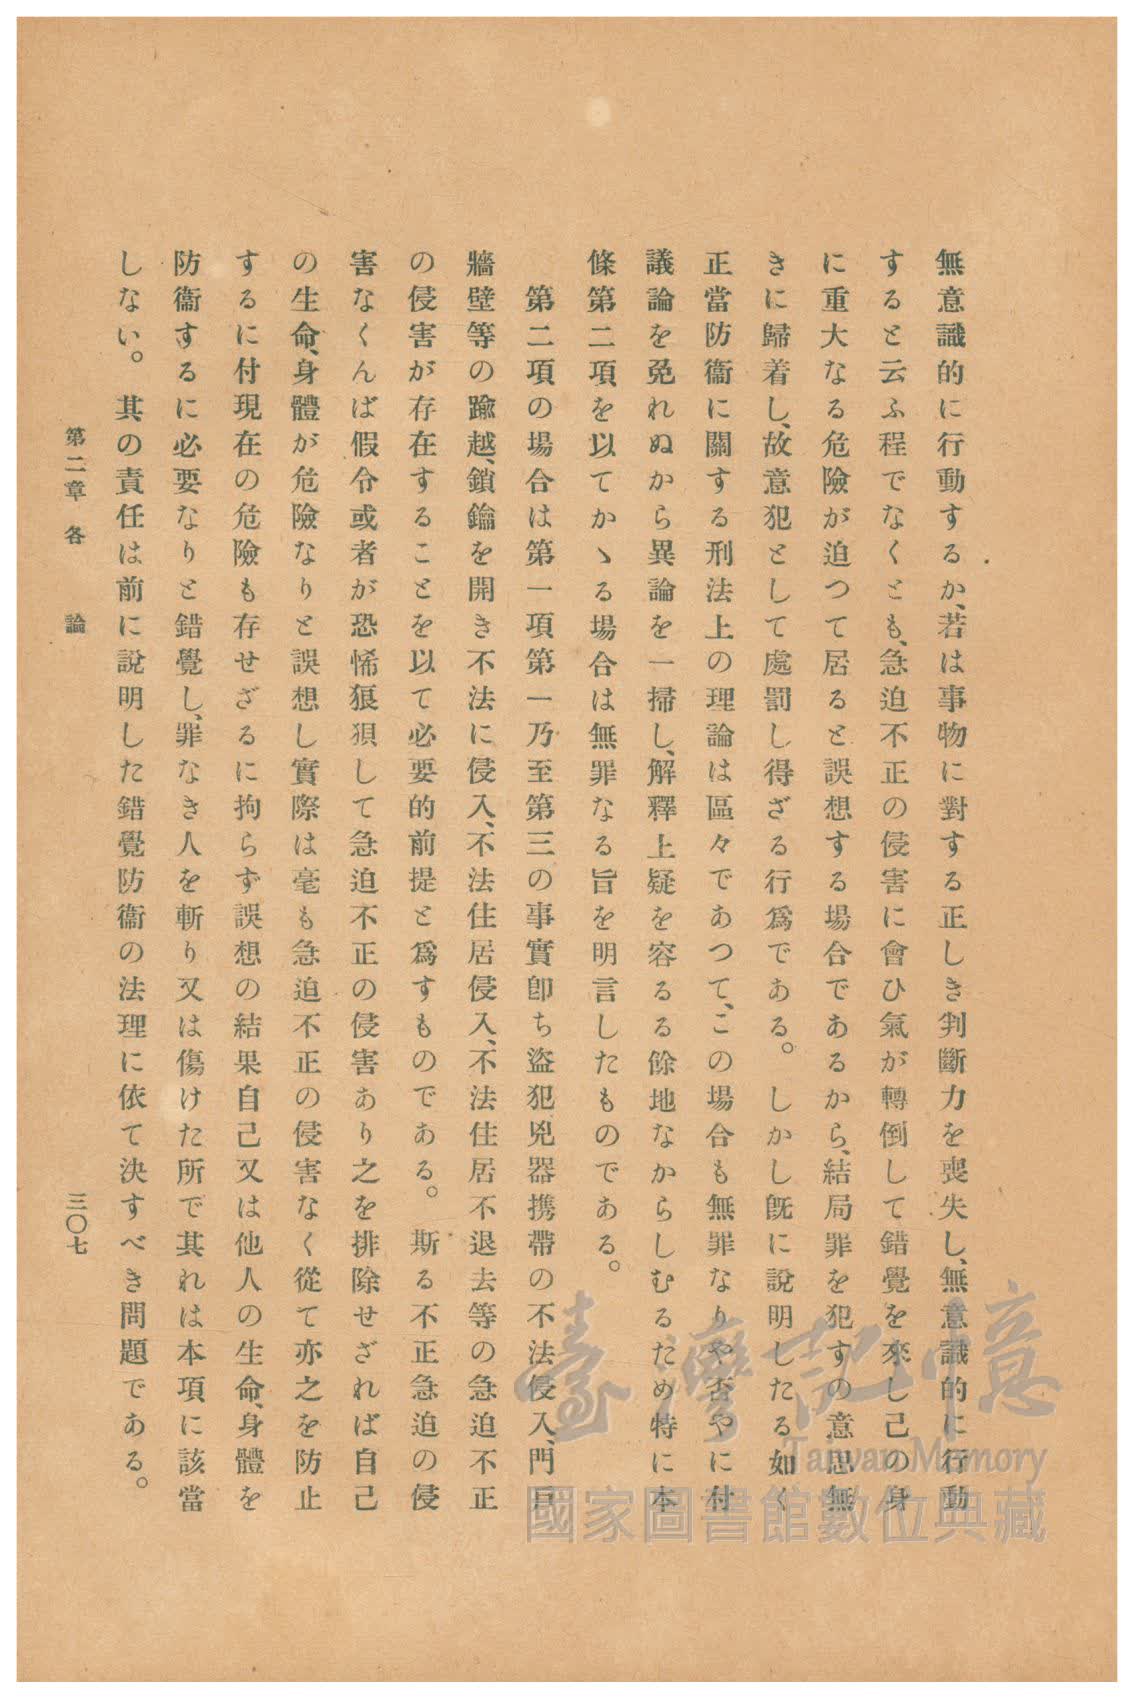 無意識的に行動するか、若は事物に對する正しき判斷力を喪失し、無意識的に行動
すると云ふ程でなくとも、急迫不正の侵害に會ひ氣が轉倒して錯覺を來し己の身
に重大なる危險が迫つて居ると誤想する場合であるから、結局罪を犯すの意思無
きに歸着し、故意犯として處罰し得ざる行爲である。しかし既に說明したる如く
正當防衞に關する刑法上の理論は區々であつて、この場合も無罪なりや否やに付
議論を免れぬから異論を一掃し、解釋上疑を容るる餘地なからしむるため特に本
條第二項を以てかゝる場合は無罪なる旨を明言したものである。
第二項の場合は第一項第一乃至第三の事實卽ち盜犯兇器携帶の不法侵入、門戶
牆壁等の踰越、鎖鑰を開き不法に侵入、不法住居侵入、不法住居不退去等の急迫不正
の侵害が存在することを以て必要的前提と爲すものである。斯る不正急迫の侵
害なくんば假令或者が恐悕狼狽して急迫不正の侵害あり之を排除せざれば自己
の生命、身體が危險なりと誤想し實際は毫も急迫不正の侵害なく從て亦之を防止
するに付現在の危險も存せざるに拘らず誤想の結果自己又は他人の生命、身體を
防衞するに必要なりと錯覺し、罪なき人を斬り又は傷けた所で其れは本項に該當
しない。其の責任は前に說明した錯覺防衞の法理に依て決すべき問題である。
第二章 各論
三〇七
臺灣記憶
Taiwan Memory
國家圖書館數位典藏